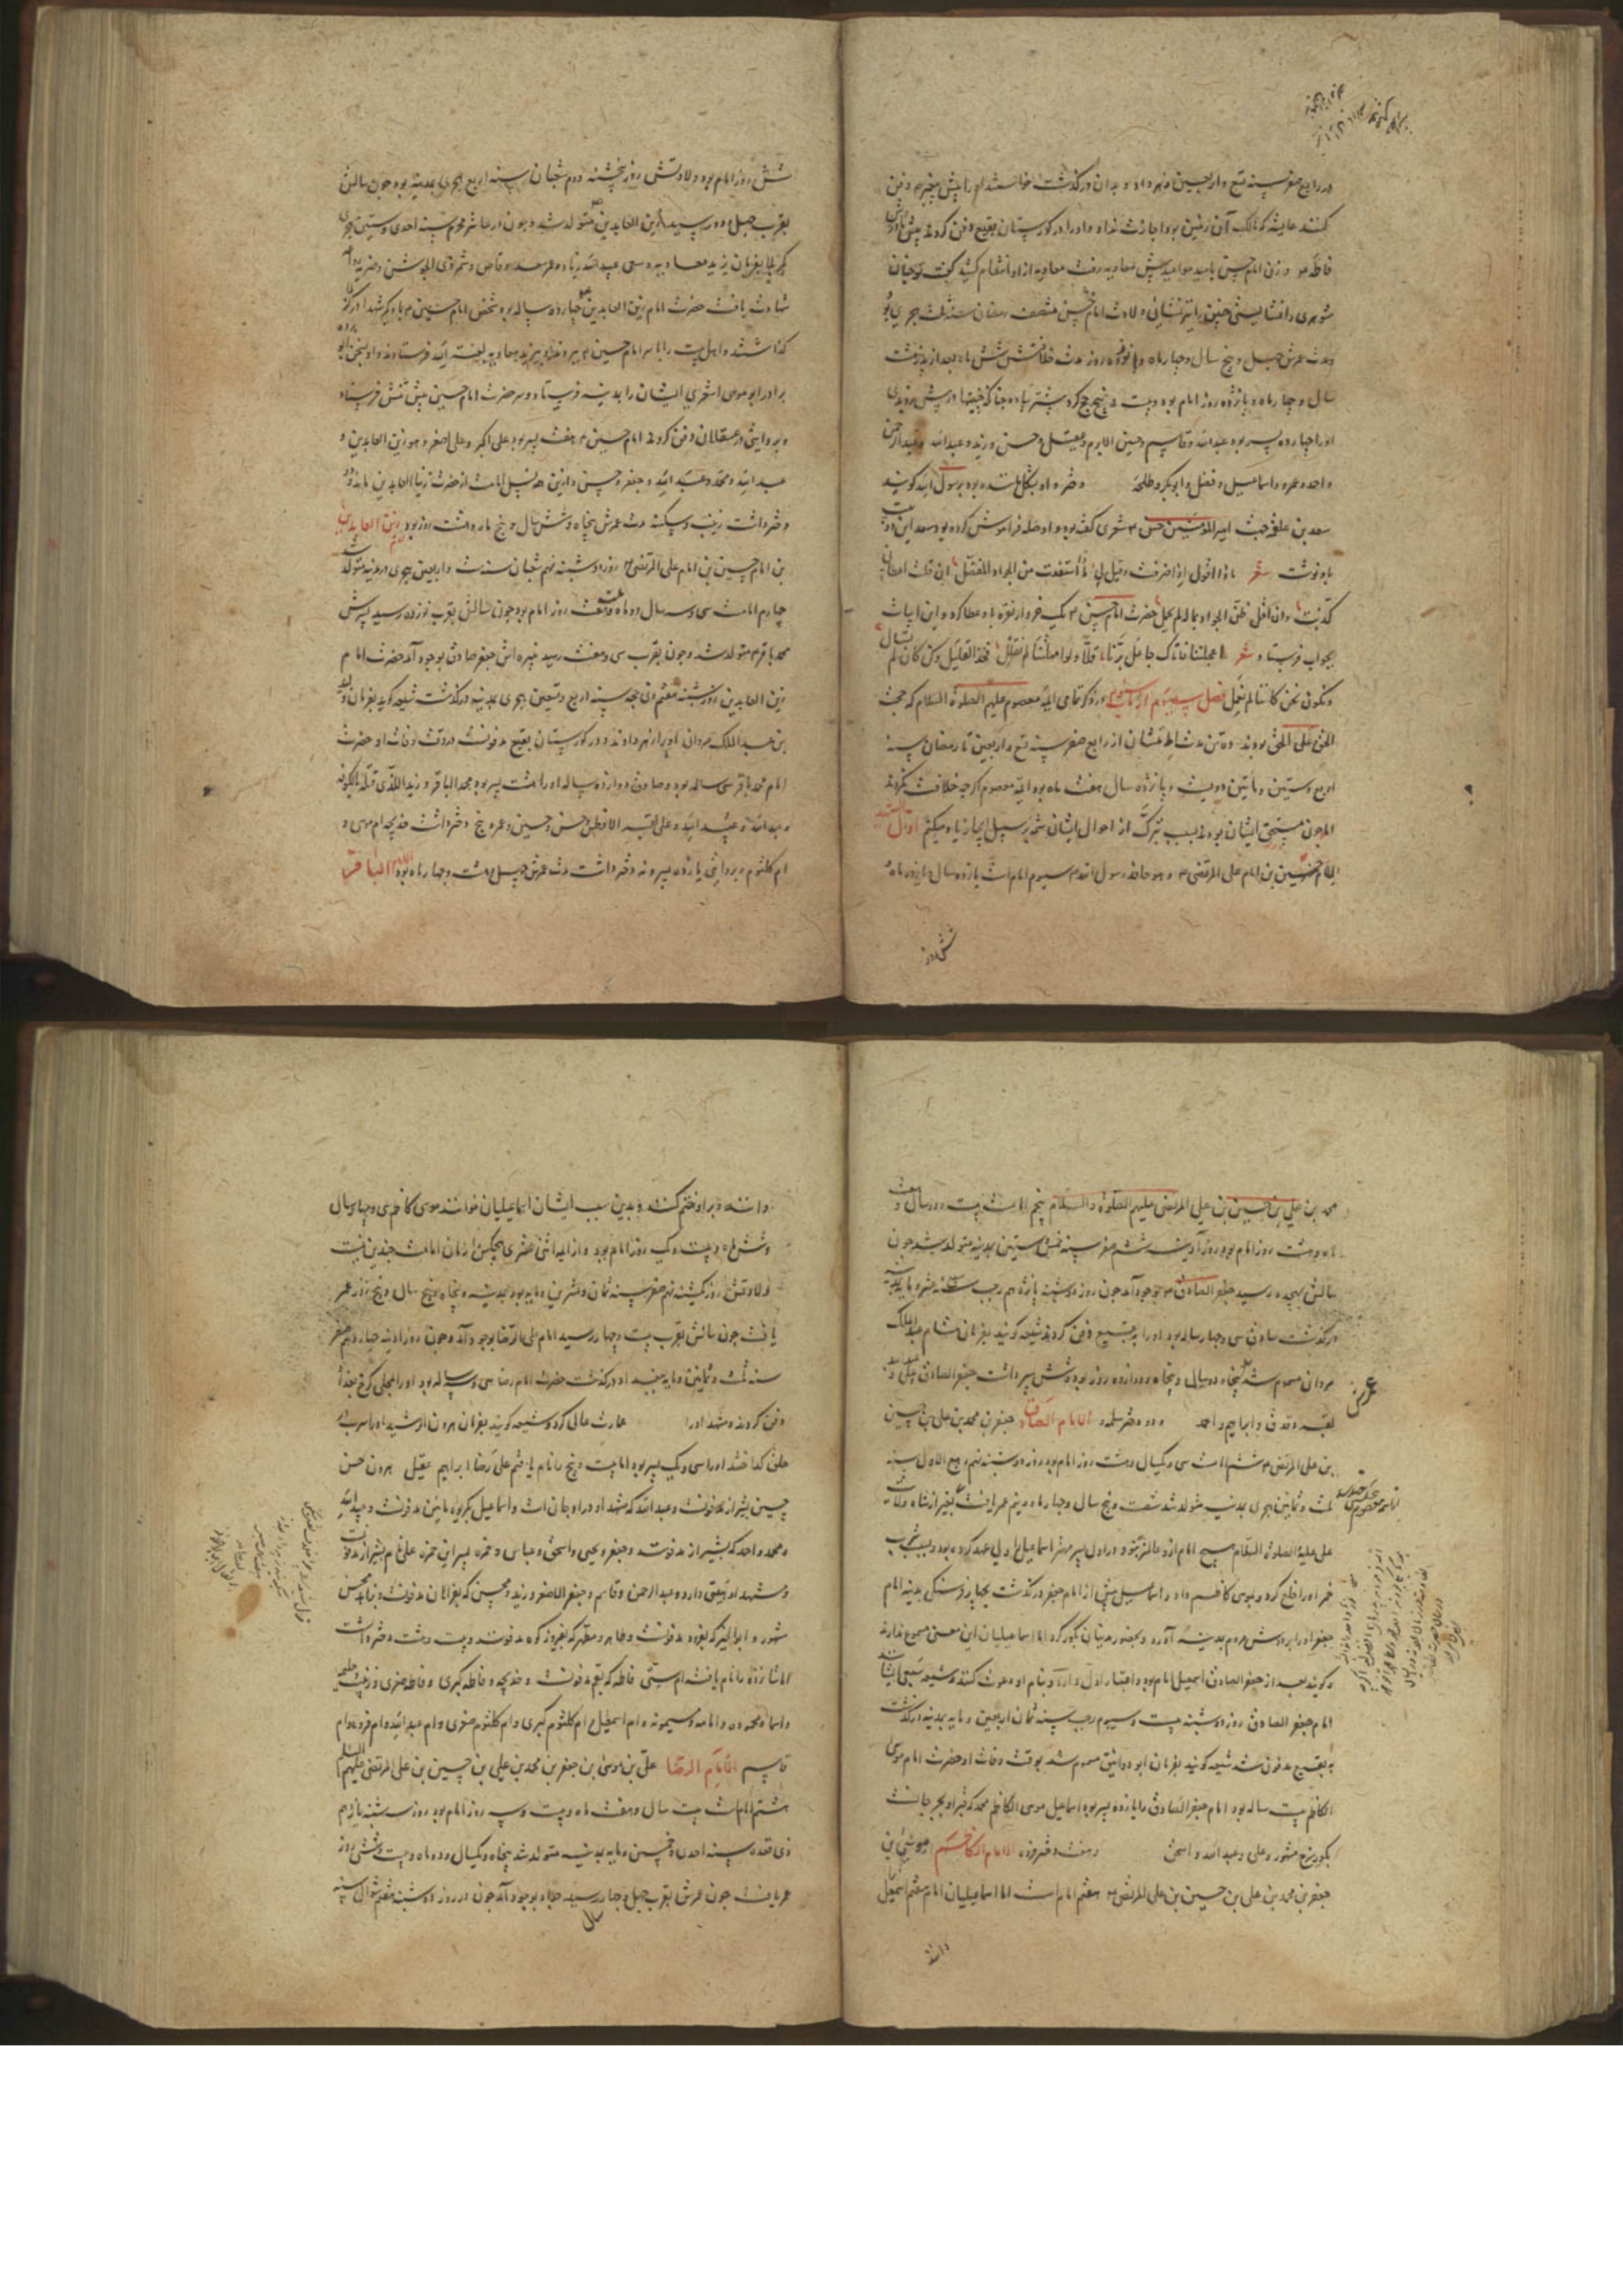 در رابع صفر سنه تسع و اربعین زهر داد و بدان درگذشت خواستند او را پیش پیغمبر دفن
کنند عایشه که مالک آن زمین بود اجازت نداد و او را در کورستان بقیع دفن کردند پیش مادرش
فاطمه و زن امام حسن بامید مواعید پیش معاویه رفت معاویه از او انتقام کشید گفت تو چنان
شوهری را نشایستی چنین را نشائی ولادت امام حسن منتصف رمضان سنه ثلث هجری بود
مدت عمرش چهل و پنج سال و چهار ماه و نوزده روز مدت خلافتش شش ماه بعد از پدر هشت
سال و چهار ماه و پانزده روز امام بود و بیست و پنج حج کرد بیشتر پیاده چنانکه جنیبتها در پیش بردندی
او را چهارده پسر بود عبد الله و قاسم و حسین الاثرم و عقیل و حسن و زید و عبد الله و عبد الرحمن
و احمد و عمرو و اسماعیل و فضل و ابوبکر و طلحه و دختر و او بشکل ماننده بود برسول الله کویند
سعد بن علقمه جهت امیر المومنین حسن شعری گفته بود و او صله فراموش کرده بود سعد این دو بیت
بدو نوشت شعر ماذا اقول اذا انصرفت و قیل لی ماذا استفدت من الجواد المفضل ان قلت اعطانی
کذبت و ان اقل ظن الجواد بماله لم یجمل حضرت امام حسن یک خروار نقره باو عطا کرد و این ابیات
بجواب فرستاد شعر اعجلتنا فاتاک عاجل برنا قلا و لو امهلتنا لم نقلل فخذ القلیل و کن کان لم تسال
و نکون نحن کاننا لم نفعل فصل سیوم از باب سیوم در ذکر تمامی ائمه معصوم علیهم الصلوة و السلام که حجت
الحق علی الخلق بودند ده تن مدت امامتشان از رابع صفر سنه تسع و اربعین تا رمضان سنه
اربع و ستین و مأتین دویست و پانزده سال هفت ماه بود ائمه معصوم اگرچه خلافت نکردند
اما چون مستحق ایشان بودند بسبب تبرک از احوال ایشان شمه بر سبیل ایجاز یاد میکنم اول
الامام حسین بن امام علی المرتضی و هو حافد رسول الله سیوم امام است یازده سال و یازده ماه
شش روز
شش روز امام بود ولادتش روز پنجشنبه دوم شعبان سنه اربع هجری بمدینه بود چون سالش
بقرب چهل و دو رسید زین العابدین متولد شد و چون در عاشر محرم سنه احدی و ستین هجری
بکربلا بفرمان یزید معاویه و سعی عبید الله زیاد و عمر سعد وقاص و شمر ذی الجوشن
شهادت یافت حضرت امام زین العابدین چهارده ساله بود شخص امام حسین با دیگر شهدا در کربلا
گذاشتند و اهل بیت را با سر امام حسین پیش یزید معاویه لعنه الله فرستادند
برادر ابو موسی اشعری ایشان را بمدینه فرستاد و سر حضرت امام حسین پیش تنش فرستاد
و بروایتی در عسقلان دفن کردند امام حسین هفت پسر بود علی اکبر و علی اصغر و هو زین العابدین و
عبد الله و محمد و عبید الله و جعفر و حسن و ازین همه نسل امامت از حضرت زین العابدین بماند و دو
دختر داشت زینب و سکینه مدت عمرش پنجاه و شش سال و پنج ماه و هشت روز بود زین العابدین
بن امام حسین بن امام علی المرتضی روز دوشنبه نهم شعبان سنه ست و اربعین هجری در مدینه متولد شد
چهارم امامت سی و سه سال دو ماه و هفت روز امام بود چون سالش بقرب نوزده رسید پسرش
محمد باقر متولد شد و چون بقرب سی و هفت رسید نبیره اش جعفر صادق بوجود آمد حضرت امام
زین العابدین روز شنبه هفتم ذی حجه سنه اربع و تسعین هجری بمدینه درگذشت شیعه کویند بفرمان ولید
بن عبد الملک مروانی او را زهر دادند و در کورستان بقیع مدفونست در وقت وفات او حضرت
امام محمد باقر سی ساله بود و صادق دوازده ساله او را هشت پسر بود محمد الباقر و زید الذی قتله بالکوفه
و عبد الله و عبید الله و علی لقبه الافطس و حسن و حسین و عمر و پنج دختر داشت خدیجه ام موسی و
ام کلثوم و بروایتی پانزده پسر و نه دختر داشت مدت عمرش چهل و هشت و چهار ماه بود الامام الباقر
محمد بن علی بن حسین بن علی المرتضی علیهم الصلوة و السلام پنجم امامست بیست و دو سال و هفت
ماه و هشت روز امام بود روز آدینه ششم صفر سنه خمس و ستین بمدینه متولد شد چون
سالش بهجده رسید جعفر الصادق بوجود آمد چون روز دوشنبه یازدهم رجب سنه عشره و مایه بمدینه
درگذشت صادق سی و چهار ساله بود او را به بقیع دفن کردند شیعه کویند بفرمان هشام عبد الملک
مروان مسموم شد پنجاه و دو سال و پنجاه و دوازده روز بود و شش پسر داشت جعفر الصادق و علی و عبد الله
لقبه دقدق و ابراهیم و احمد و دو دختر سلمه و الامام الصادق جعفر بن محمد بن علی بن حسین
بن علی المرتضی ششم امامت سی و یکسال و هشت روز امام بود روز دوشنبه نهم ربیع الاول سنه
ثلث و ثمانین هجری بمدینه متولد شد شصت و پنج سال و چهار ماه و نیم عمر یافت بغیر از شاه ولایت
علی علیه الصلوة و السلام هیچ امام ازو عالمتر نبود در اول پسر مهتر اسماعیل را ولی عهد کرده بود و بسبب شرب
خمر او را خلع کرد و بموسی کاظم داد و اسماعیل پیش از امام جعفر درگذشت بچهار فرسنگی مدینه امام
جعفر او را بر دوش مردم بمدینه آورد و بحضور مدنیان بکور کرد اما اسماعیلیان این معنی مسموع ندارند
و کویند بعد از جعفر الصادق اسمعیل امام بود و اعتبار اول دارد و بنام او دعوت کنند و شیعه سبعی ایشانند
امام جعفر الصادق روز دوشنبه بیست و سیوم رجب سنه ثمان اربعین و مایه بمدینه درگذشت
به بقیع مدفون شد شیعه کویند بفرمان ابو دوانیق مسموم شد بوقت وفات او حضرت امام موسی
الکاظم بیست ساله بود امام جعفر الصادق را یازده پسر بود اسماعیل موسی الکاظم محمد که قبر او بجرجانست
بکور سرخ مشهور و علی و عبد الله و اسحق و هفت دختر بوده الامام الکاظم موسی بن
جعفر بن محمد بن علی بن حسین بن علی المرتضی هفتم امامست اما اسماعیلیان امام هفتم اسمعیل
دانند
دانند و برو ختم کنند و بدین سبب ایشان اسماعیلیان خوانند موسی کاظم سی و چهار سال
و شش ماه و بیست و یک روز امام بود و از ائمه اثنی عشری هیچکس را زمان امامت چندین نیست
ولادتش روز یکشنبه نهم صفر سنه ثمان و عشرین و مایه بود بمدینه و پنجاه و پنج سال و پنج روز عمر
یافت چون سالش بقرب بیست و چهار رسید امام علی الرضا بوجود آمد و چون روز آدینه چهاردهم صفر
سنه ثلث و ثمانین و مایه ببغداد درگذشت حضرت امام رضا سی و سه ساله بود او را بمحلی کرخ بغداد
دفن کردند و مشهد او را عمارت عالی کرد و شیعه کویند بفرمان هرون الرشید او را سرب در
حلق گداختند او را سی و یک پسر بود اما بیست و پنج را نام یافتم علی رضا ابراهیم عقیل هرون حسن
حسین بشیراز مدفونست و عبد الله که مشهد او در اوجان است و اسماعیل بکربوه مابین مدفونست و عبید الله
و محمد و احمد که بشیراز مدفونند و جعفر و یحیی و اسحق و عباس و حمزه پسر این حمزه علی هم بشیراز مدفونست
و مشهد او دارد و عبد الرحمن و قاسم و جعفر الاصغر و زید و محسن که بفرامان مدفونست و بزاهد محسن
مشهور و ابو الخیر که بغرود مدفونست و طاهر و مطهر که بفیروزکوه مدفونند و بیست و هشت دختر داشت
اما شانزده را نام یافته ام ستی فاطمه که بقم مدفونست و خدیجه و فاطمه کبری و فاطمه صغری و زینب و حلیمه
و اسما و محموده و امامه و میمونه و ام اسمعیل و ام کلثوم کبری و ام کلثوم صغری و ام عبد الله و ام فروه و ام
قاسم الامام الرضا علی بن موسی بن جعفر بن محمد بن علی بن حسین بن علی المرتضی علیهم السلم
هشتم امامست بیست سال و هفت ماه و بیست و سه روز امام بود روز سه شنبه یازدهم
ذی قعده سنه احدی و خمسین و مایه بمدینه متولد شد پنجاه و یکسال و دو ماه و بیست و شش روز
عمر یافت چون عمرش بقرب چهل و چهار رسید جواد بوجود آمد چون در روز دوشنبه هفتم شوال سنه